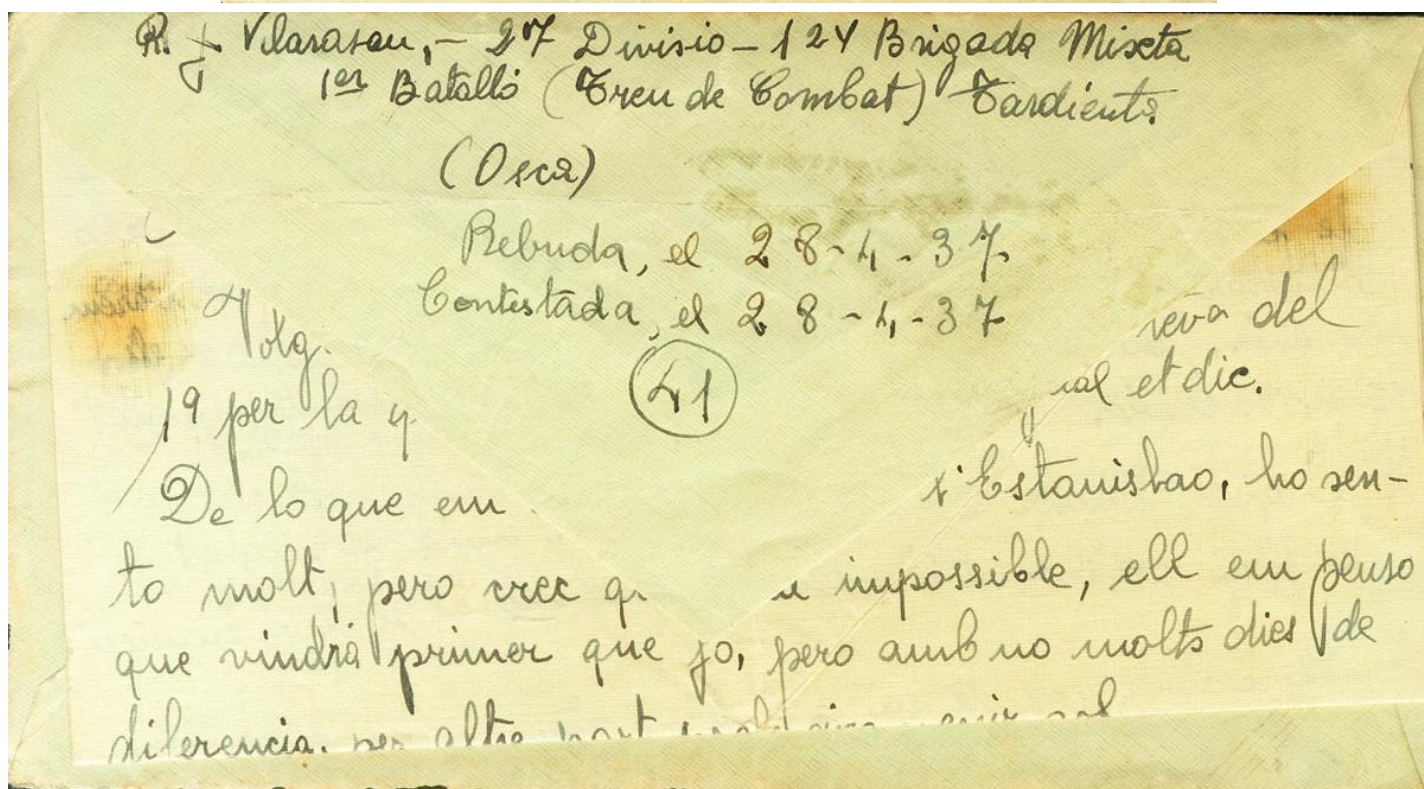 R. J. Vilarasau, - 27 Divisio - 124 Brigada Mixta
1er Batalló (Treu de Combat) Tardienta
(Osca)
Rebuda, el 28-4-37
Contestada, el 28-4-37
41
Volg. eva del
19 per la q ual et dic.
De lo que em Estanislao, ho sen-
to molt, pero crec q impossible, ell em penso
que vindrá primer que jo, pero amb no molts dies de
diferencia. per altre part